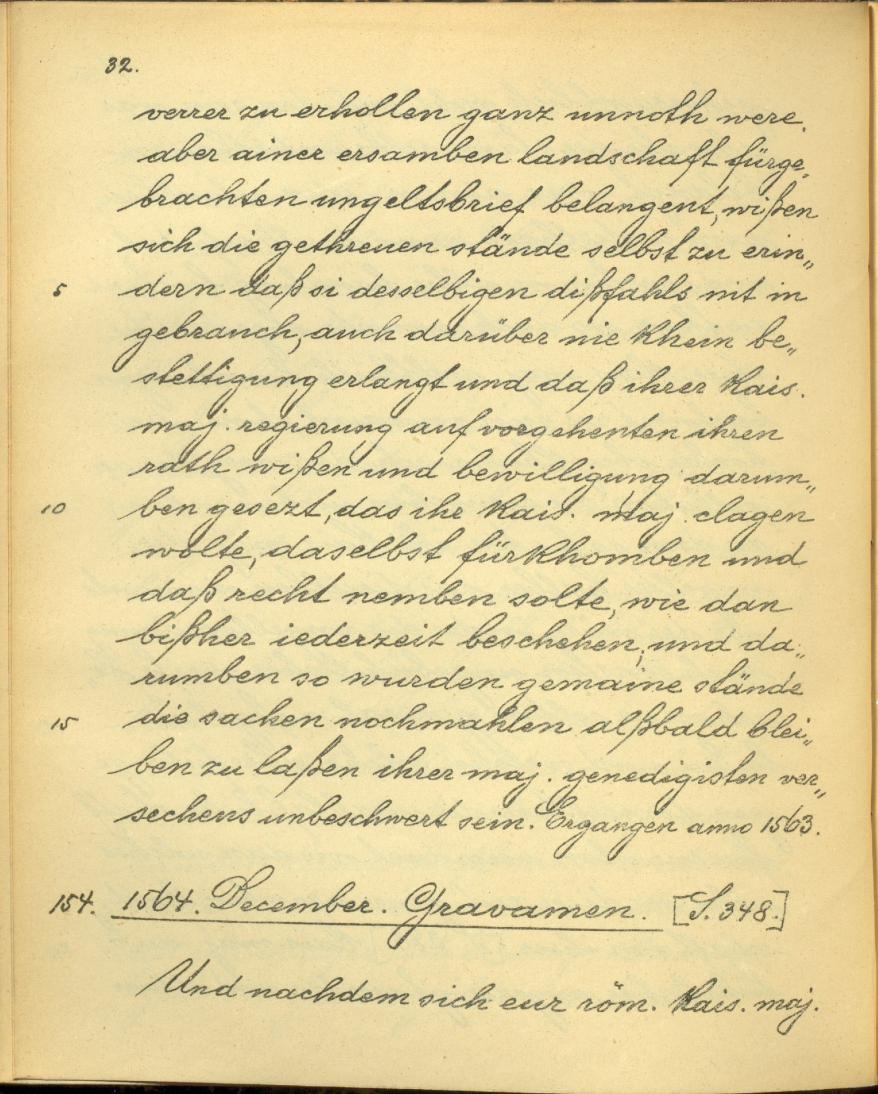 32.
verrer zu erhollen ganz unnoth were.
aber ainer ersamben landschaft fürge„
brachten ungeltsbrief belangent, wißen
sich die gethreuen stände selbst zu erin„
5 dern daß si desselbigen dißfahls nit in
gebrauch, auch darüber nie khein be„
stettigung erlangt und daß ihrer kais.
maj. regierung auf vorgehenten ihren
rath wißen und bewilligung darum„
10 ben gesezt, das ihr kais. maj. clagen
wolte, daselbst fürkhomben und
daß recht nemben solte, wie dan
bißher iederzeit beschehen, und da„
rumben so wurden gemaine stände
15 die sachen nochmahlen alßbald blei„
ben zu laßen ihrer maj. genedigisten ver„
sechens unbeschwert sein. Ergangen anno 1563.
154. 1564. December. Gravamen. [S. 348.]
Und nachdem sich eur röm. kais. maj.